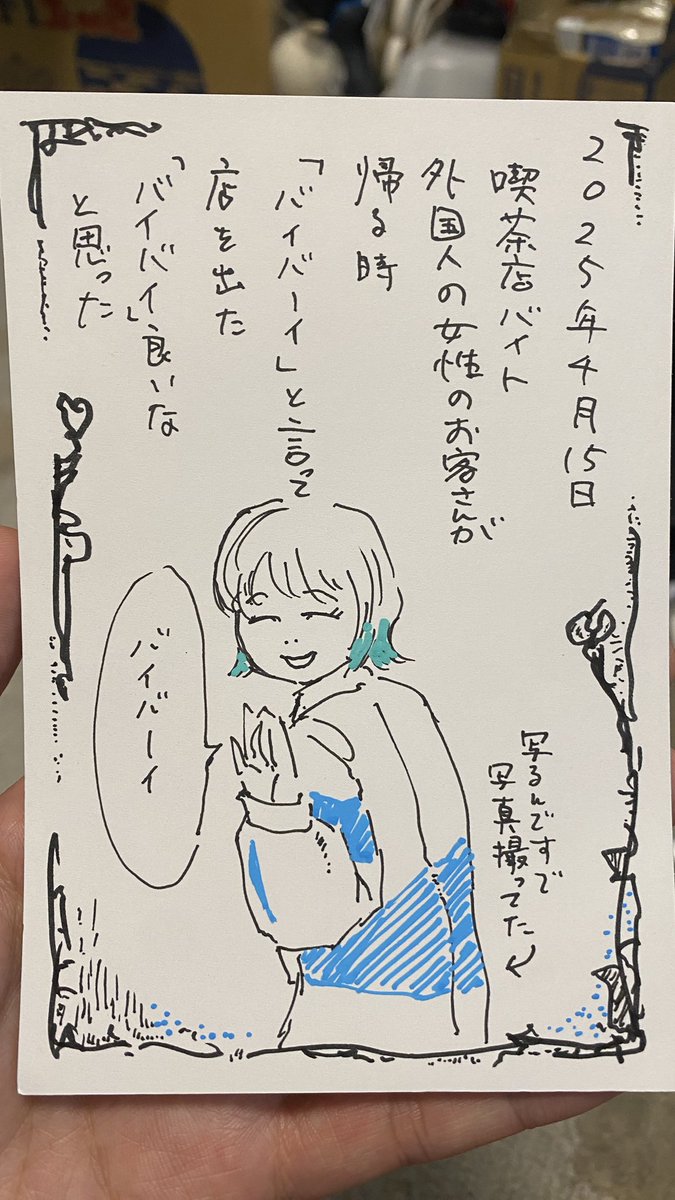 2025年4月15日
喫茶店バイト
外国人の女性のお客さんが
帰る時
「バイバーイ」と言って
店を出た
「バイバイ」良いな
と思った
バイバーイ
写るんですで
写真撮ってた